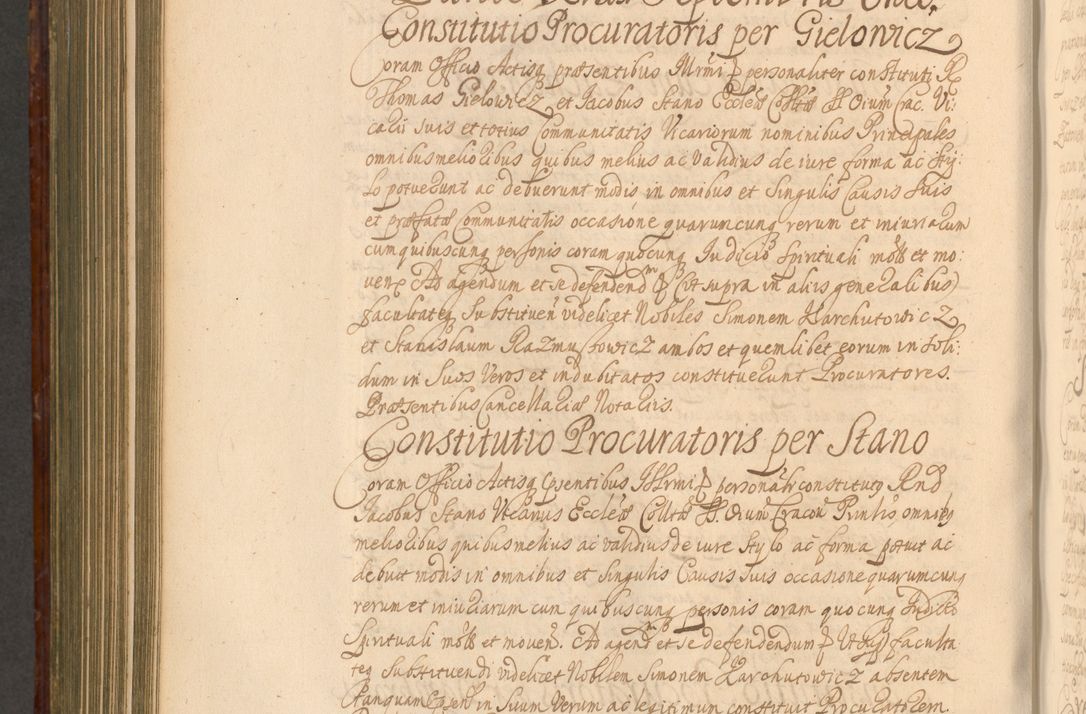 Constitutio Procuratoris per Gielowicz
Coram Officio Actisq præsentibus Illrmi P personaliter constituti R
Thomas Gielowicz et Iacobus Stano Ecclæ Colltæ SS Oium Crac. Vi:
carii suis et totius Communitatis Vicariorum nominibus Principales
omnibus melioribus quibus melius ac validius de iure forma ac sty:
lo potuerunt ac debuerunt modis in omnibus et singulis Causis suis
et præfatæ Communitatis occasione quarumcunq rerum et iniuriarum
cum quibuscunq personis coram quocunq Iudicio spirituali mots et mo:
ven. Ad agendum et se defendend P (ut supra in aliis generalibus)
facultateq substituen videlicet Nobiles Simonem Harchutowicz
et Stanislaum Razmustowicz ambos et quemlibet eorum in soli:
dum in suos Veros et indubitatos constituerunt Procuratores.
Præsentibus Cancellariæ Notariis.
Constitutio Procuratoris per Stano
Coram Officio Actisq Ipsentibus Illrmi P personalr constitutq Rnd
Iacobus Stano Vicarius Ecclæ Colltæ SS. Oium Cracou Prinlis omnibq
melioribus quibus melius ac validius de iure stylo ac forma potuit ac
debuit modis in omnibus et singulis Causis suis occasione quarumcunq
rerum et iniuriarum cum quibuscunq personis coram quocunq Iudicio
Spirituali mots et moven. Ad agend et se defendendum P Ut supra faculta
teq substituendi videlicet Nobilem Simonem Harchutowicz absentem
tanquam Ipsen in Suum Verum ac legitimum constituit Procuratorem.